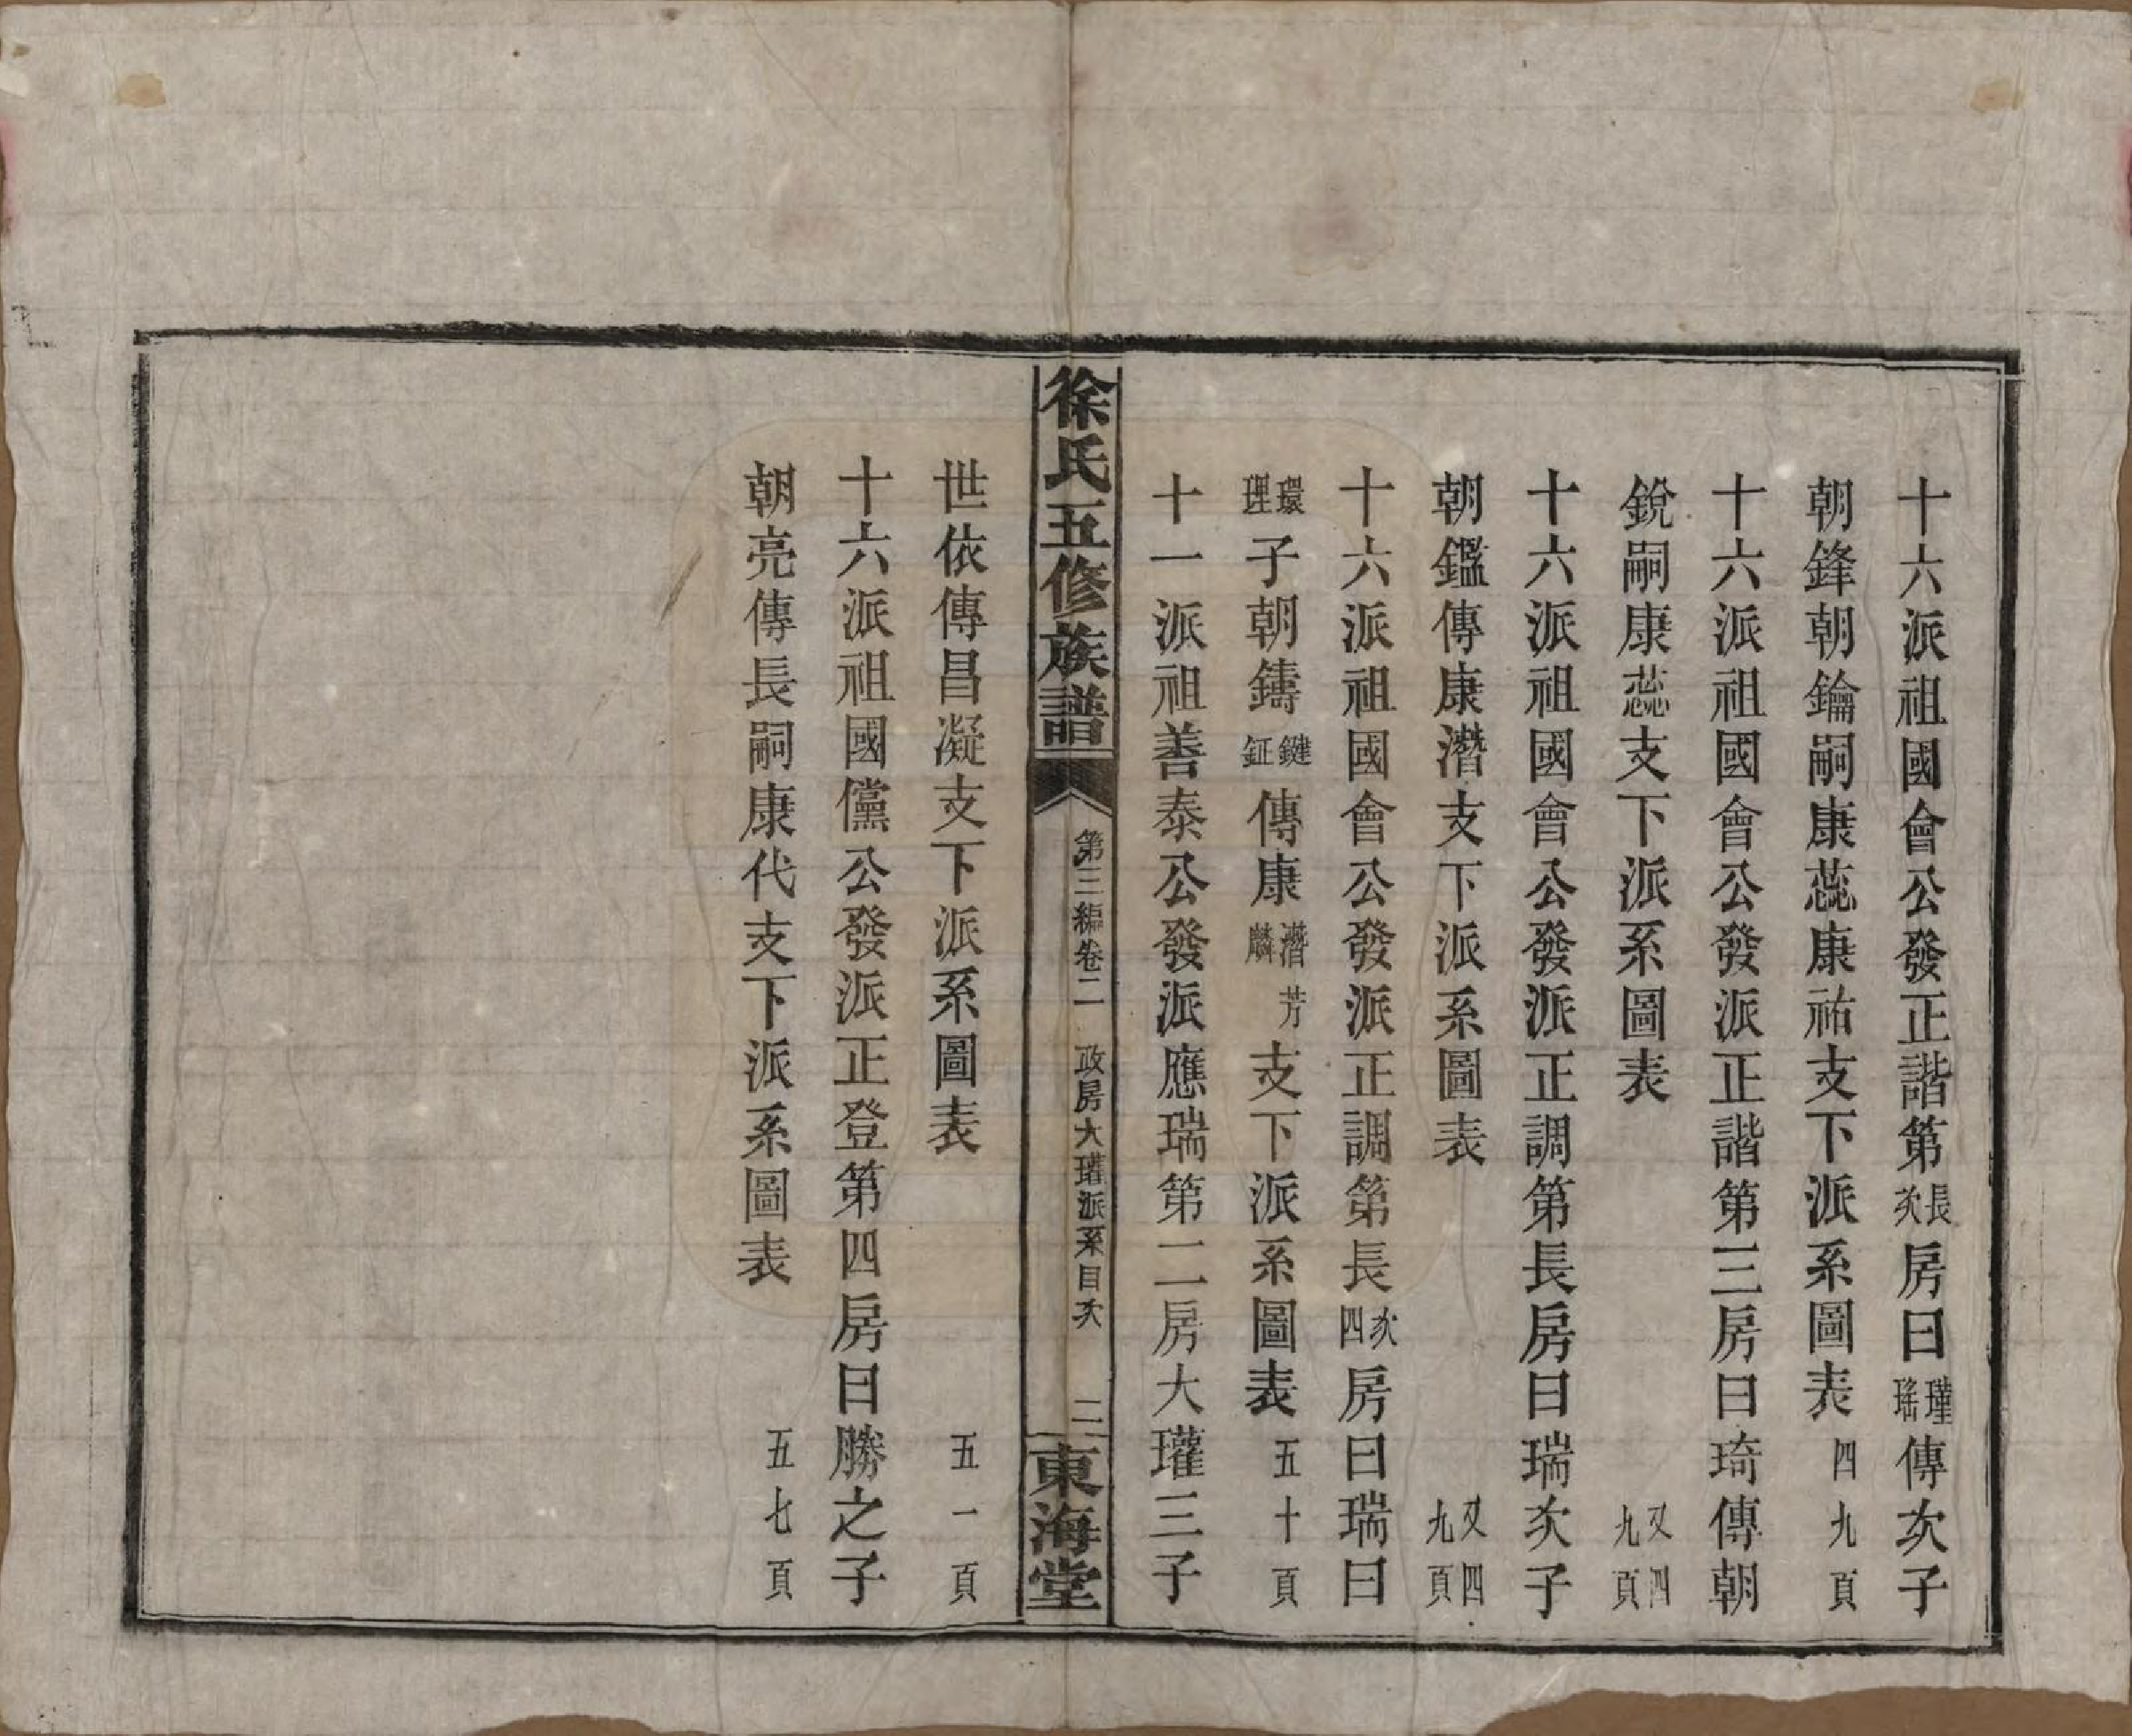 十六派祖國會公發正諧第長次房曰瑾瑤傳次子
朝鋒朝鑰嗣康蕊康祐支下派系圖表四九頁
十六派祖國會公發派正諧第三房曰琦傳朝
銳嗣康蕊支下派系圖表又四九頁
十六派祖國會公發派正調第長房曰瑞次子
朝鑑傳康濳支下派系圖表又四九頁
十六派祖國會公發派正調第長次四房曰瑞曰
環理子朝鑄鍵鉦傳康濳麟芳支下派系圖表五十頁
十一派祖善泰公發派應瑞第二房大瓘三子
徐氏五修族譜
第三編卷二 政房大瓘派系目次 二
東海堂
世依傳昌凝支下派系圖表五一頁
十六派祖國儻公發派正登第四房曰勝之子
朝亮傳長嗣康代支下派系圖表五七頁